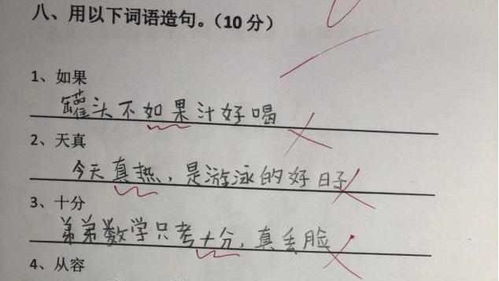 八、用以下词语造句。（10 分）
1、如果
罐头不如果汁好喝
2、天真
今天真热，是游泳的好日子
3、十分
弟弟数学只考十分，真丢脸
4、从容